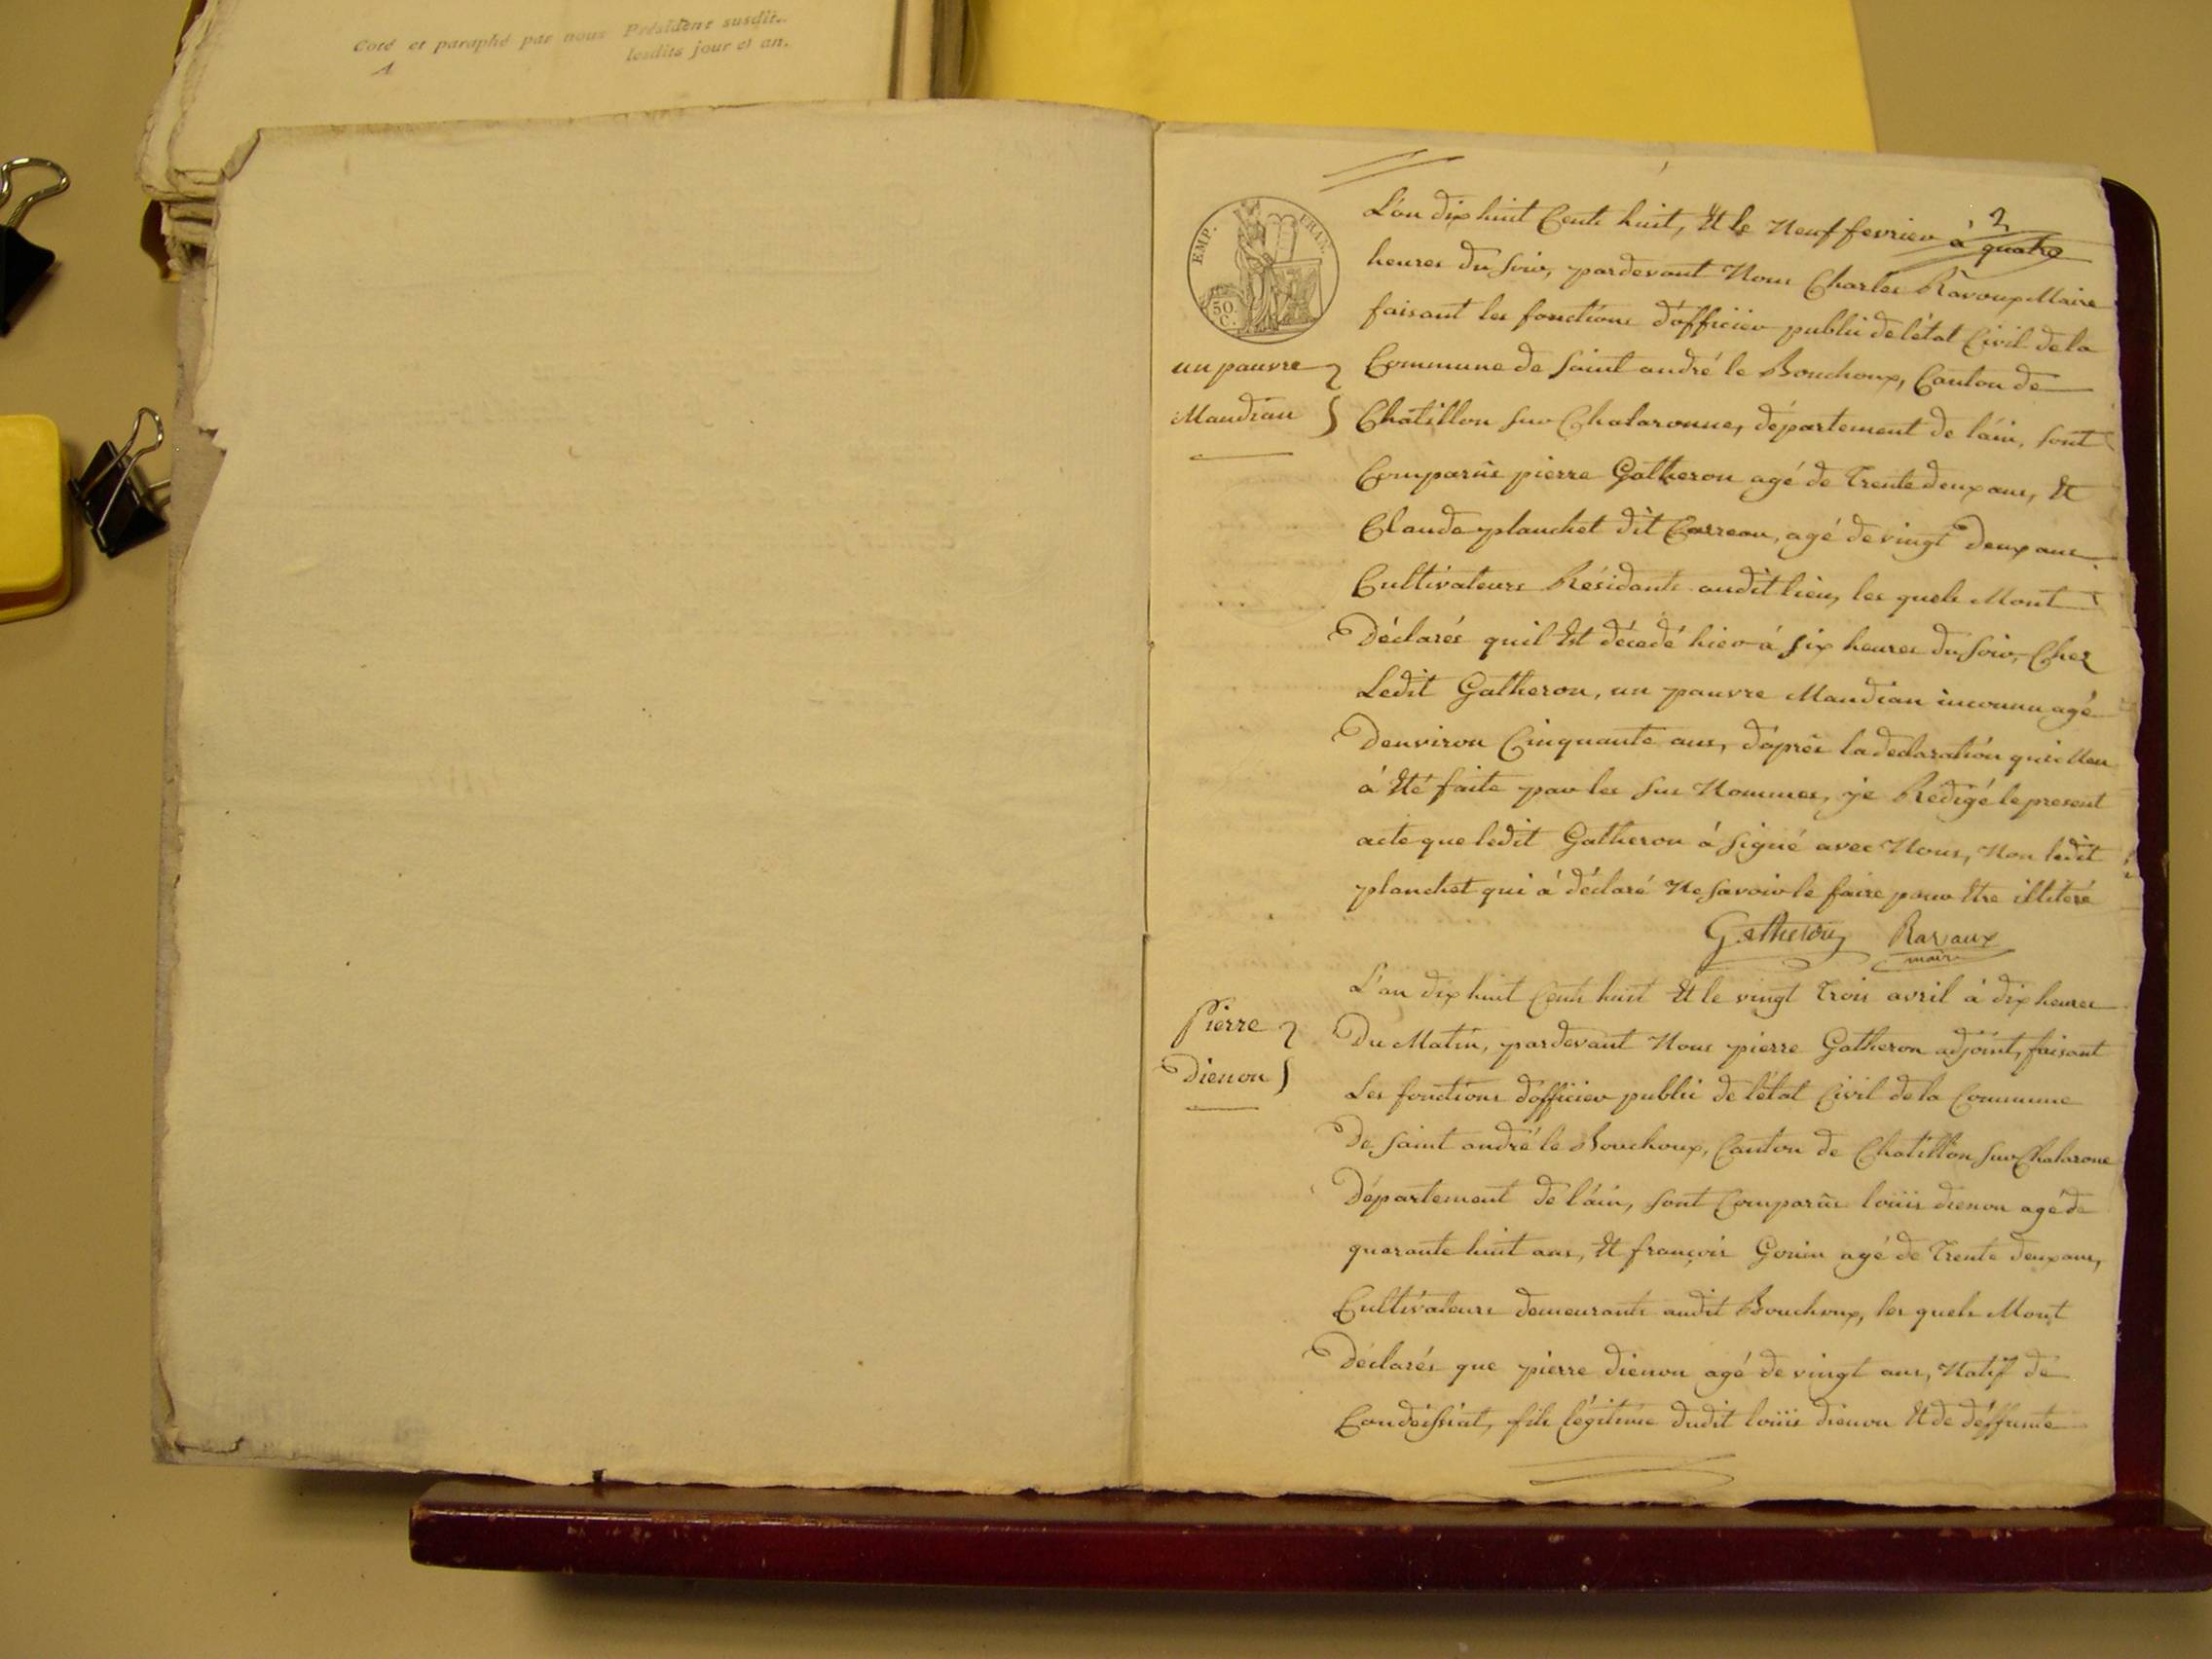 Coté et paraphé par nous Président susdit..
lesdits jour et an.
1
2
EMP. FRAN.
50.
C.
L'an dix huit Cents huit, Et le Neuf fevrier à quatre
heures du soir, pardevant Nous Charles Ravoux Maire
faisant les fonctions d'officier public de l'état Civil de la
un pauvre
Mandian
Commune de Saint andré le Bouchoux, Canton de
Chatillon sur Chalaronne, département de l'ain, sont
Comparûs pierre Gatheron agé de Trente deux ans, Et
Claude planchet dit Carreau, agé de vingt Deux ans
Cultivateurs Résidants audit lieu, les quels Mont
Déclarés quil Est décedé hier à six heures du soir, Chez
Ledit Gatheron, un pauvre Mandian inconnu agé
Denviron Cinquante ans, d'après la declaration qui Men
à Eté faite par les sus Nommes, je Redigé le present
acte que ledit Gatheron à signé avec Nous, Non ledit
planchet qui à déclaré Ne savoir le faire pour Etre illiteré
Gatheron Ravaux
maire
Pierre
Dienon
L'an dix huit Cents huit Et le vingt Trois avril à dix heures
Du Matin, pardevant Nous pierre Gatheron adjoint, faisant
Les fonctions d'officier public de l'état Civil de la Commune
De saint andré le Bouchoux, Canton de Chatillon sur Chalarone
Département de l'ain, sont Comparûs loüis dienon agé de
quarante huit ans, Et françois Gonin agé de Trente deux ans,
Cultivateurs demeurants audit Bouchoux, les quels Mont
Déclarés que pierre dienon agé de vingt ans, Natif de
Condeissiat, fils légitime dudit loüis dienon Et de déffunte